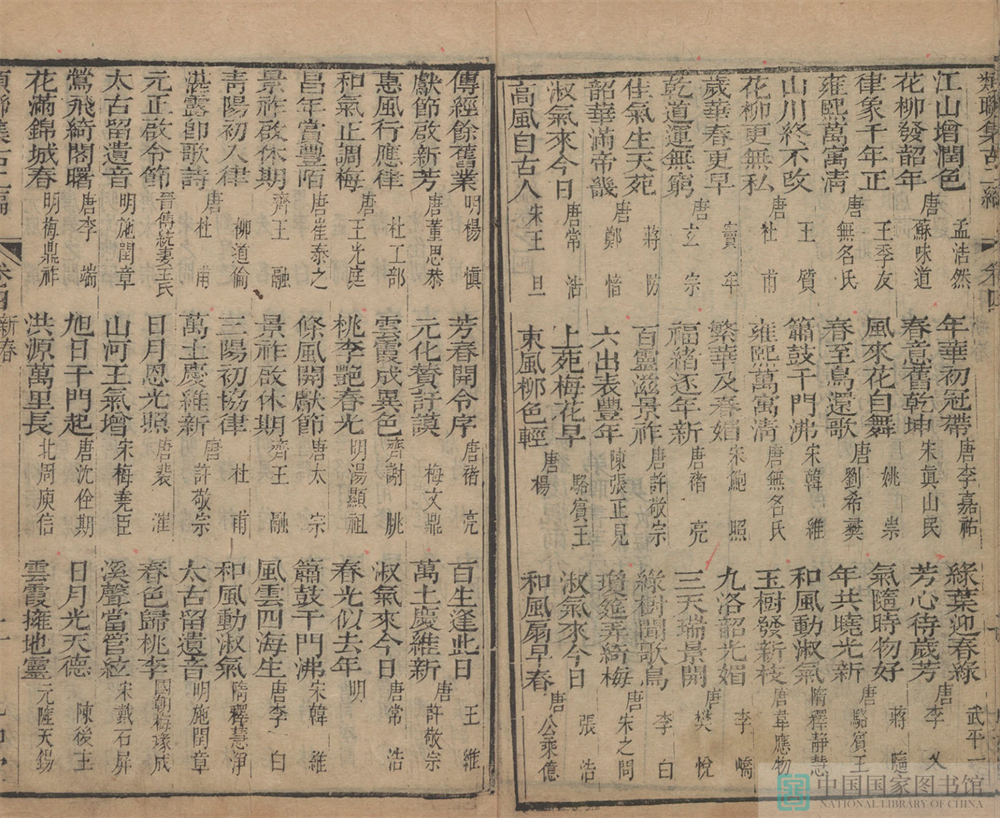 類聯集古二編 卷四
江山增潤色 孟浩然 年華初冠帶 唐李嘉祐 綠葉迎春綠 武平一
花柳發韶年 唐蘇味道 春意舊乾坤 宋真山民 芳心待歲芳 唐李乂
律象千年正 王季友 風來花自舞 姚崇 氣隨時物好 蔣
雍熙萬寓清 唐無名氏 春至鳥還歌 唐劉希夷 年共曉光新 唐駱賓王
山川終不改 王質 簫鼓千門沸 宋韓維 和風動淑氣 隋釋靜慧
花柳更無私 唐杜甫 雍熙萬寓清 唐無名氏 玉樹發新枝 唐韋應物
歲華春更早 竇牟 繁華及春媚 宋鮑照 九洛韶光媚 李嶠
乾道運無窮 唐玄宗 福緒逐年新 唐褚亮 三天瑞景開 唐樊悅
佳氣生天苑 蔣防 百靈滋景祚 唐許敬宗 綠樹聞歌鳥 李白
韶華滿帝畿 唐鄭愔 六出表豐年 陳張正見 瓊筵弄綺梅 唐宋之問
淑氣來今日 唐常浩 上苑梅花早 駱賓王 淑氣來今日 張浩
高風自古人 宋王旦 東風柳色輕 唐楊 和風扇早春 唐公乘億
傳經餘舊業 明楊慎 芳春開令序 唐褚亮 百生逢此日 王維
獻節啟新芳 唐董思恭 元化贊訏謨 梅文鼎 萬土慶維新 唐許敬宗
惠風行應律 杜工部 雲霞成異色 齊謝朓 淑氣來今日 唐常浩
和氣正調梅 唐王光庭 桃李艷春光 明湯顯祖 春光似去年 明
昌年賞豐陌 唐崔泰之 條風開獻節 唐太宗 簫鼓千門沸 宋韓維
景祚啟休期 齊王融 景祚啟休期 齊王融 風雲四海生 唐李白
青陽初入律 柳道倫 三陽初協律 杜甫 和風動淑氣 隋釋慧淨
湛露卽歌詩 唐杜甫 萬土慶維新 唐許敬宗 太古留遺音 明施閏章
元正啟令節 晉傅統妻王氏 日月恩光照 唐裴漼 春色歸桃李 國朝梅成
太古留遺音 明施閏章 山河王氣增 宋梅堯臣 溪聲當管絃 宋戴石屏
鶯飛綺閣曙 唐李端 旭日千門起 唐沈佺期 日月光天德 陳後主
花滿錦城春 明梅鼎祚 洪源萬里長 北周庾信 雲霞擁地靈 元薩天錫
類聯集古二編 卷四 新春
中国国家图书馆
NATIONAL LIBRARY OF CHINA